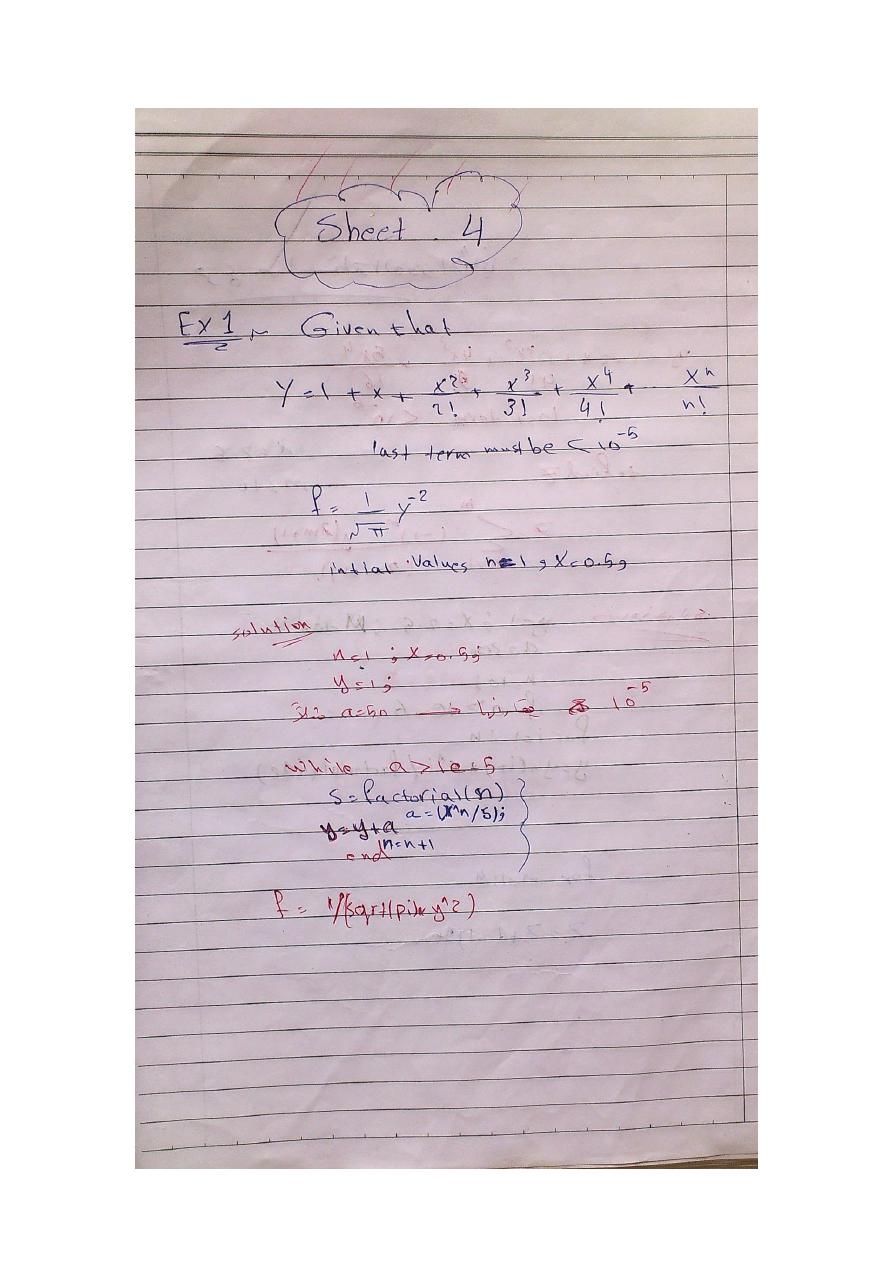 Sheet 4
Ex 1 Given that
Y = 1 + x + x^2/2! + x^3/3! + x^4/4! + ... x^n/n!
last term must be < 10^-5
f = 1/√π y^-2
intial values n=1, x=0.5,
solution
n=1; x=0.5;
y=1;
a=5n → 10^-5
while a>1e-5
s=factorial(n)
a=(x^n/s);
y=y+a
n=n+1
end
f = 1/(sqrt(pi)*y^2)